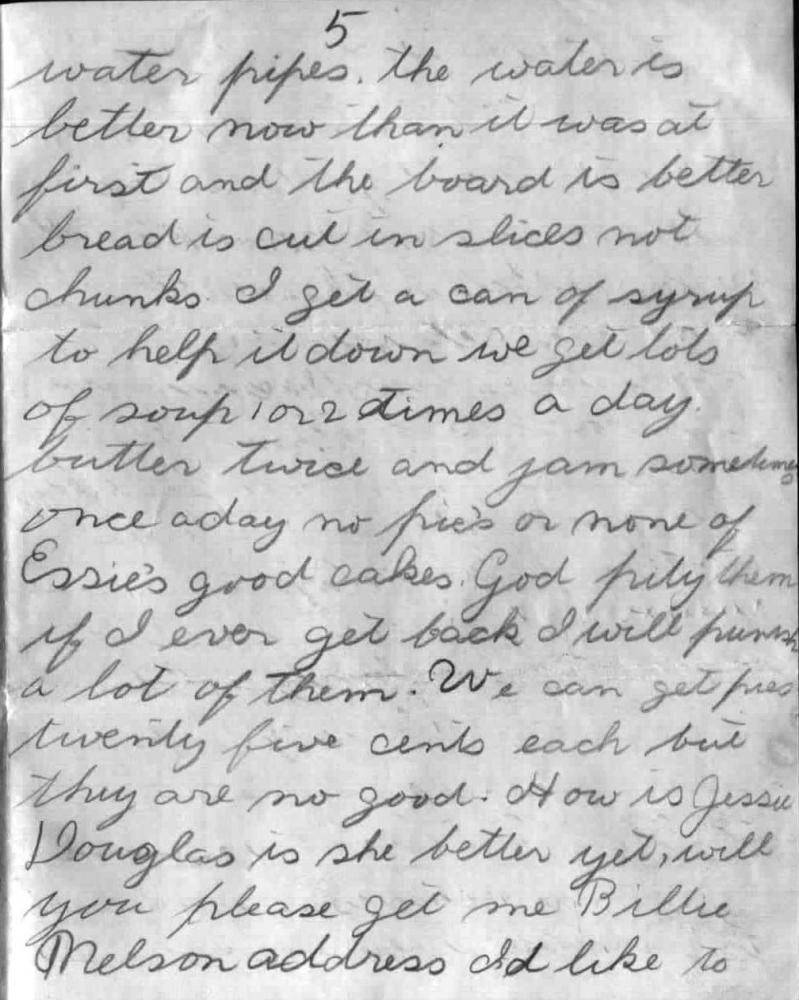 5
water pipes. the water is
better now than it was at
first and the board is better
bread is cut in slices not
chunks. I get a can of syrup
to help it down we get lots
of soup 1 or 2 times a day.
butter twice and jam sometimes
once a day no pie's or none of
Essie's good cakes. God pity them
if I ever get back I will punish
a lot of them. We can get pies
twenty five cents each but
they are no good. How is Jessie
Douglas is she better yet, will
you please get me Billie
Melson address I'd like to